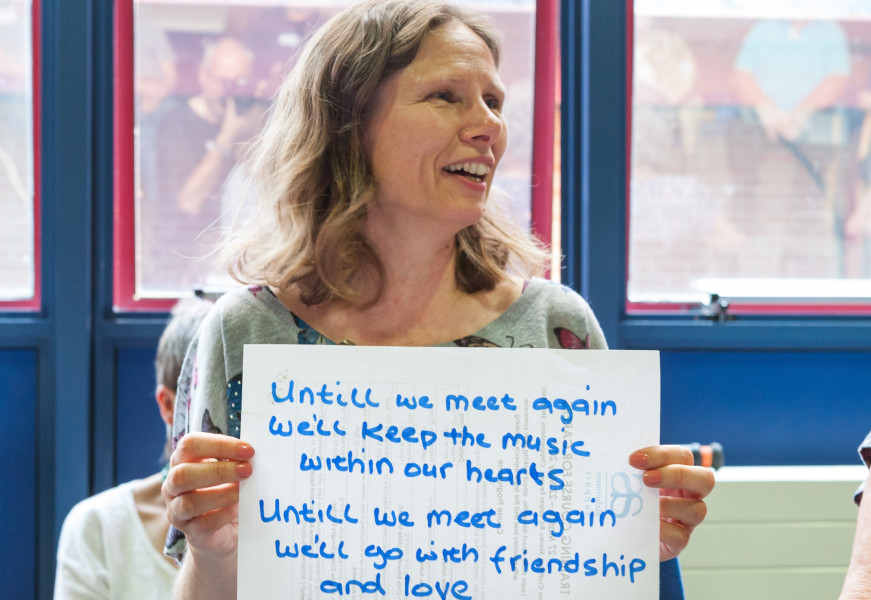 Untill we meet again
we'll keep the music
within our hearts
Untill we meet again
we'll go with friendship
and love